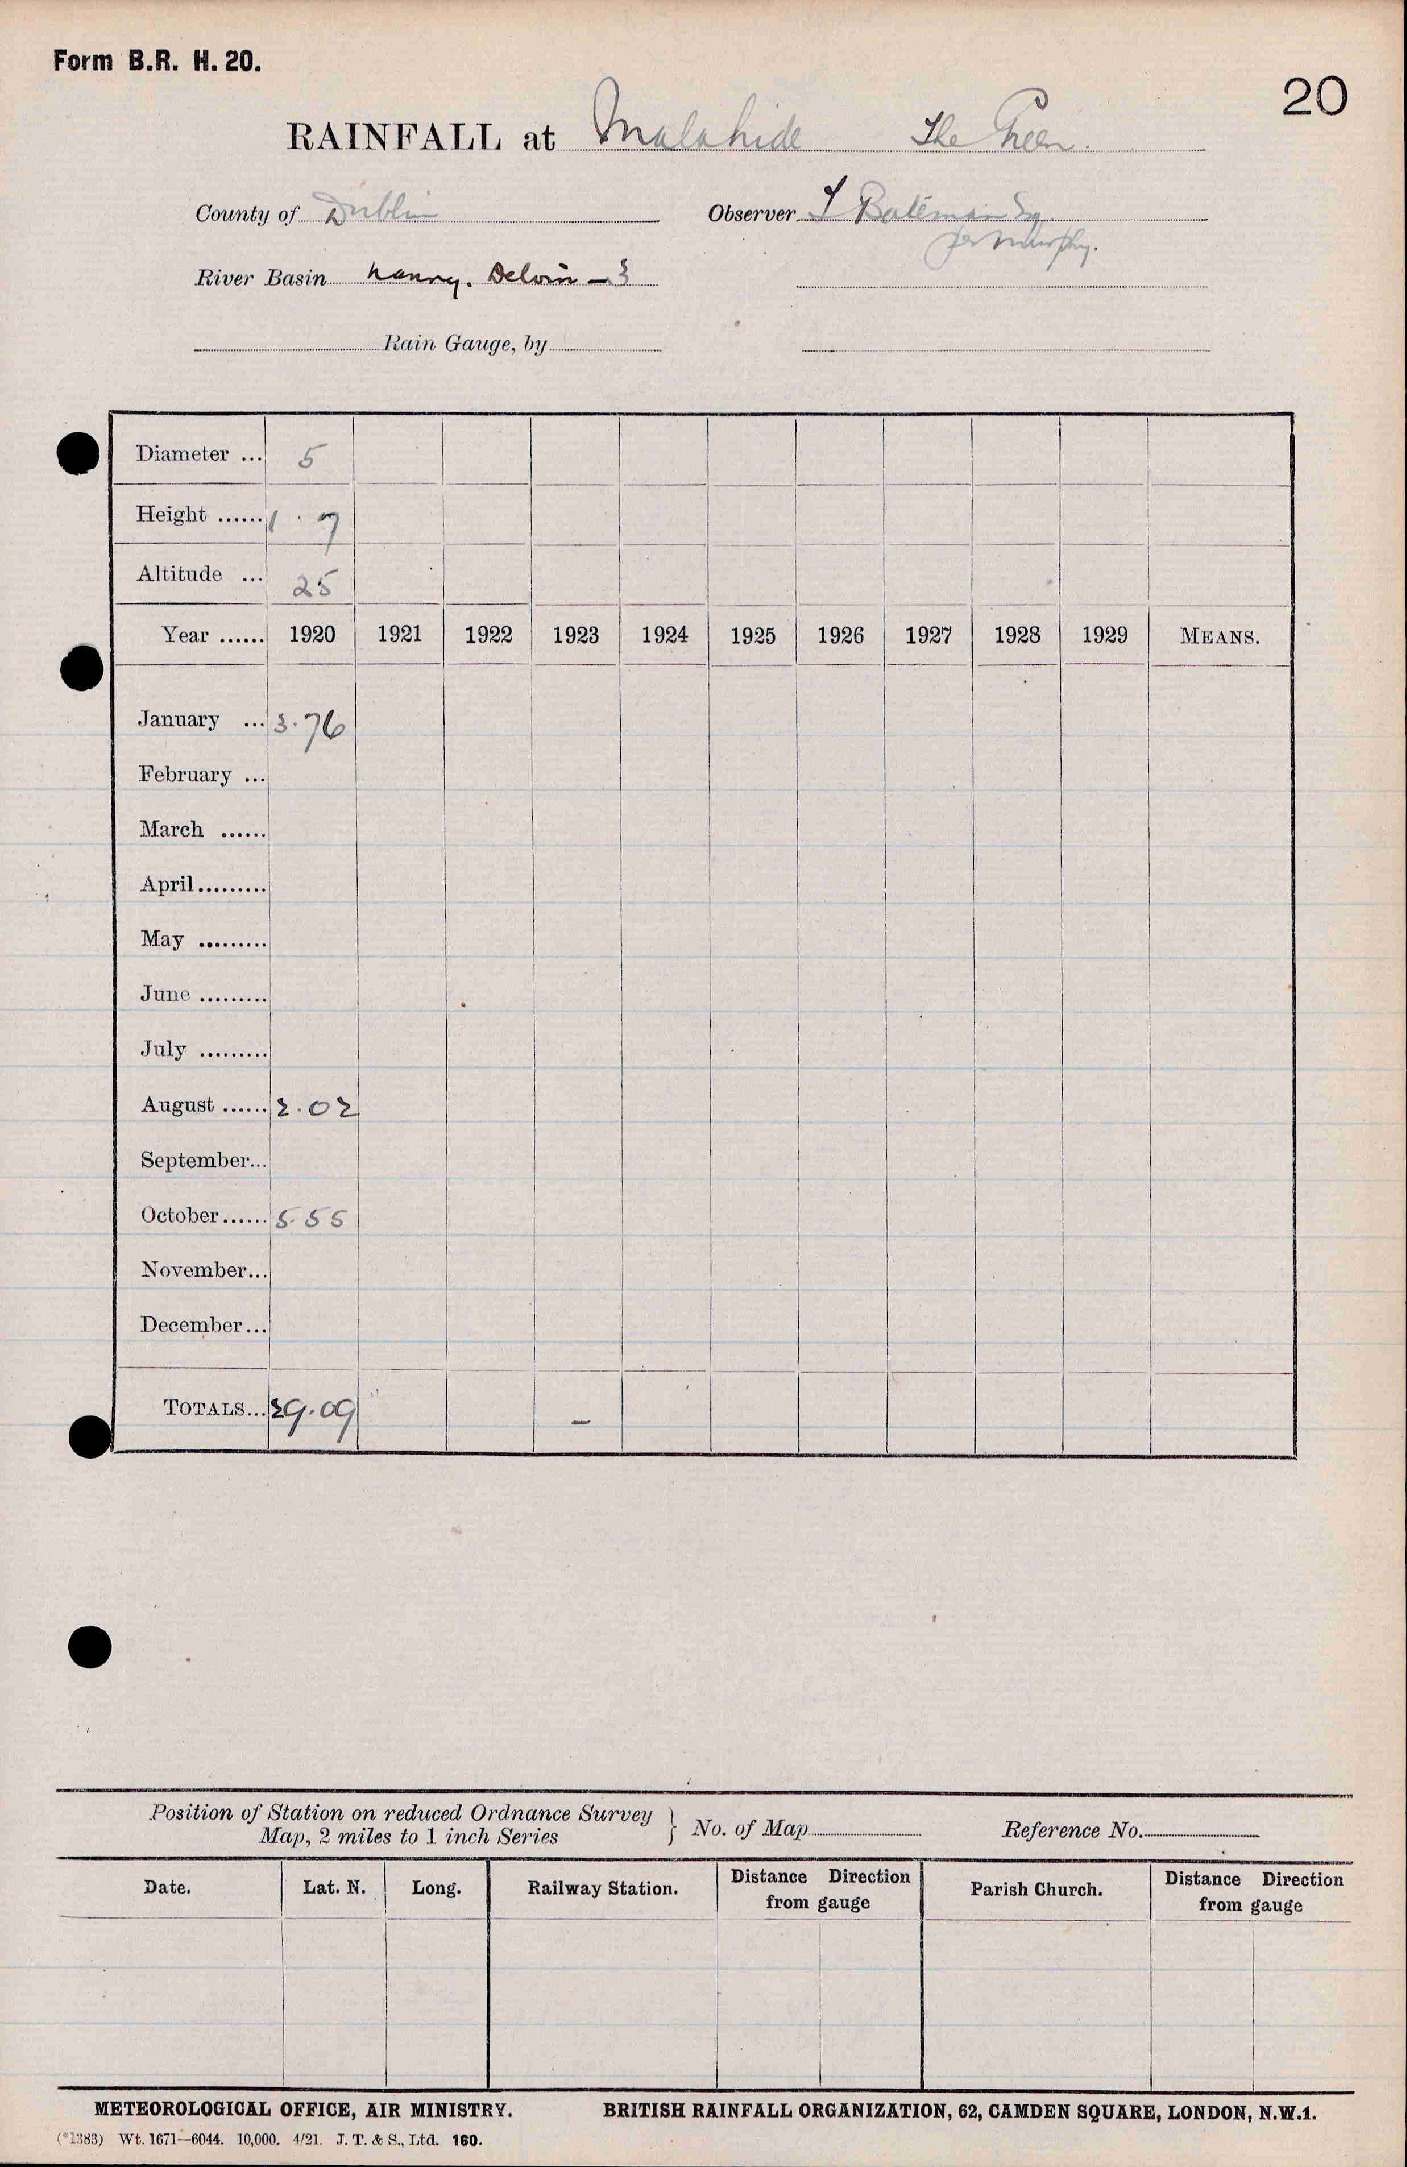 Form B.R. H. 20.
20
RAINFALL at Malahide The Green.
County of Dublin
Observer T Bateman Esq
per Murphy.
River Basin Nanny. Delvin –
Rain Gauge, by
Diameter ... 5
Height ...... 1 . 7
Altitude ... 25
Year ...... 1920 1921 1922 1923 1924 1925 1926 1927 1928 1929 MEANS.
January ... 3.76
February ...
March ......
April.........
May .........
June .........
July .........
August ...... 2.02
September...
October...... 5.55
November...
December...
TOTALS... 29.09 –
Position of Station on reduced Ordnance Survey
Map, 2 miles to 1 inch Series } No. of Map Reference No.
Date. Lat. N. Long. Railway Station. Distance Direction from gauge Parish Church. Distance Direction from gauge
METEOROLOGICAL OFFICE, AIR MINISTRY. BRITISH RAINFALL ORGANIZATION, 62, CAMDEN SQUARE, LONDON, N.W.1.
(*1383) Wt. 1671—6044. 10,000. 4/21. J. T. & S., Ltd. 160.